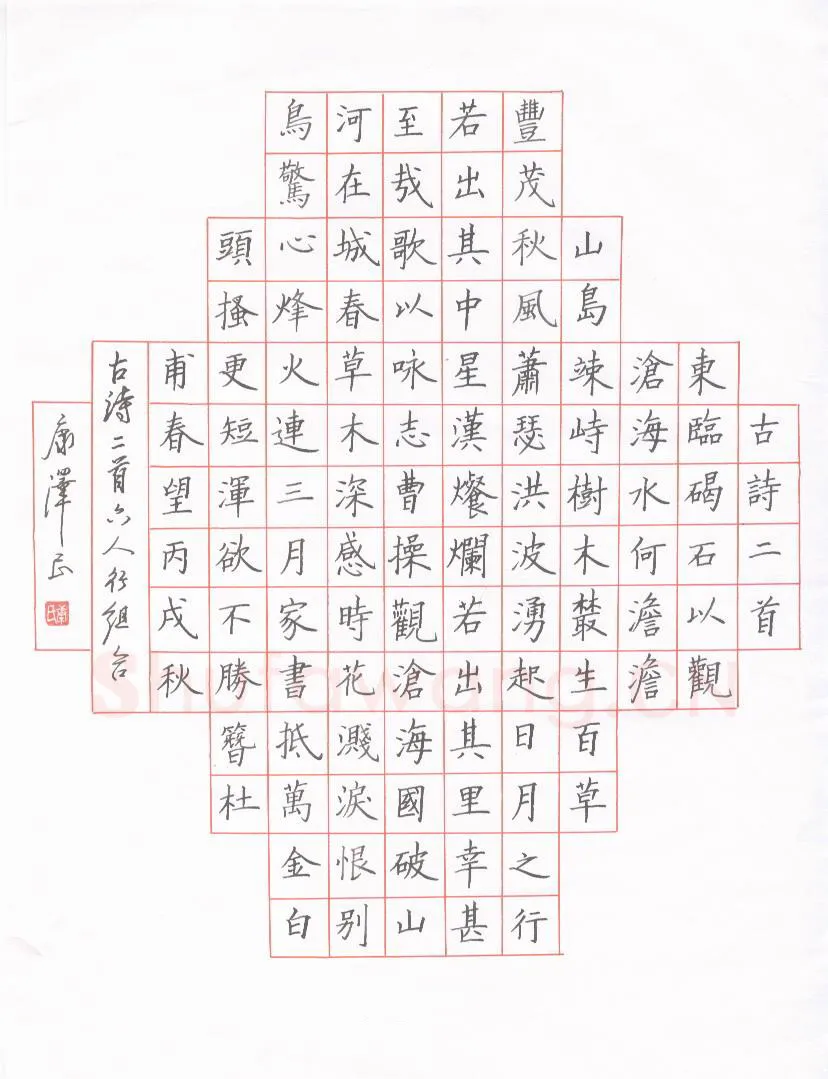 古詩二首
東臨碣石以觀
滄海水何澹澹
山島竦峙樹木叢生百草
豐茂秋風蕭瑟洪波湧起日月之行
若出其中星漢燦爛若出其里幸甚
至哉歌以咏志曹操觀滄海國破山
河在城春草木深感時花濺淚恨别
鳥驚心烽火連三月家書抵萬金白
頭搔更短渾欲不勝簪杜
甫春望丙戌秋
古詩二首六人行組合
康澤
Shufawang.CN